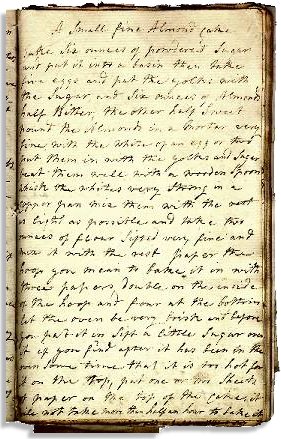 A Small fine Almond Cake
Take Six ounces of powder'd Sugar
and put it into a bason then take
nine eggs and put the yolks with
the Sugar and Six ounces of Almonds
half Bitter, the other half Sweet
pound the Almonds in a mortar very
fine with the white of an egg or two
put them in with the yolks and Sugar
beat them well with a wooden Spoon
whisk the whites very Strong in a
copper pan mix them with the rest
as light as possible and take two
ounces of flour Sifted very fine and
mix it with the rest paper the
hoop you mean to bake it in with
three papers, double on the inside
of the hoop and four at the bottom
let the oven be very brisk and before
you put it in Sift a little Sugar over
it if you find after it has been in the
oven some time that it is too hot for
it on the top, put one or two Sheets
of paper on the top of the Cake, it
will not take more than half an hour to bake it